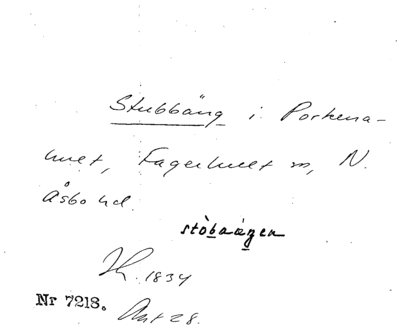 Stubbäng i Porkena-
hult, Fagerhult sn, N.
Åsbo hd.
stòbaágen
H. 1834
Nr 7218. Ant 28.